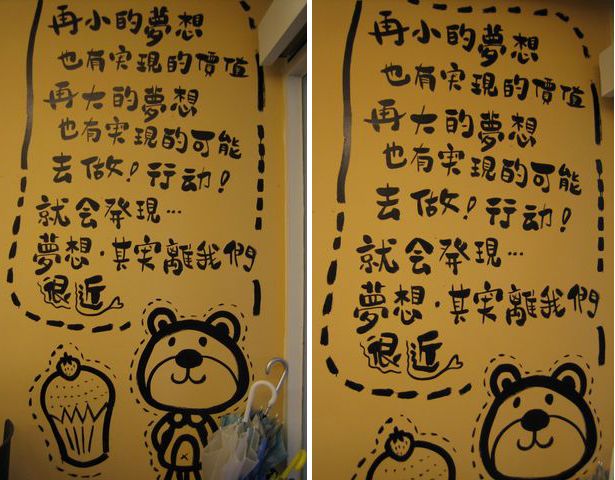 再小的夢想
也有实現的價值
再大的夢想
也有实現的可能
去做!行动!
就会發現…
夢想·其实離我們
很近
再小的夢想
也有实現的價值
再大的夢想
也有实現的可能
去做!行动!
就会發現…
夢想·其实離我們
很近